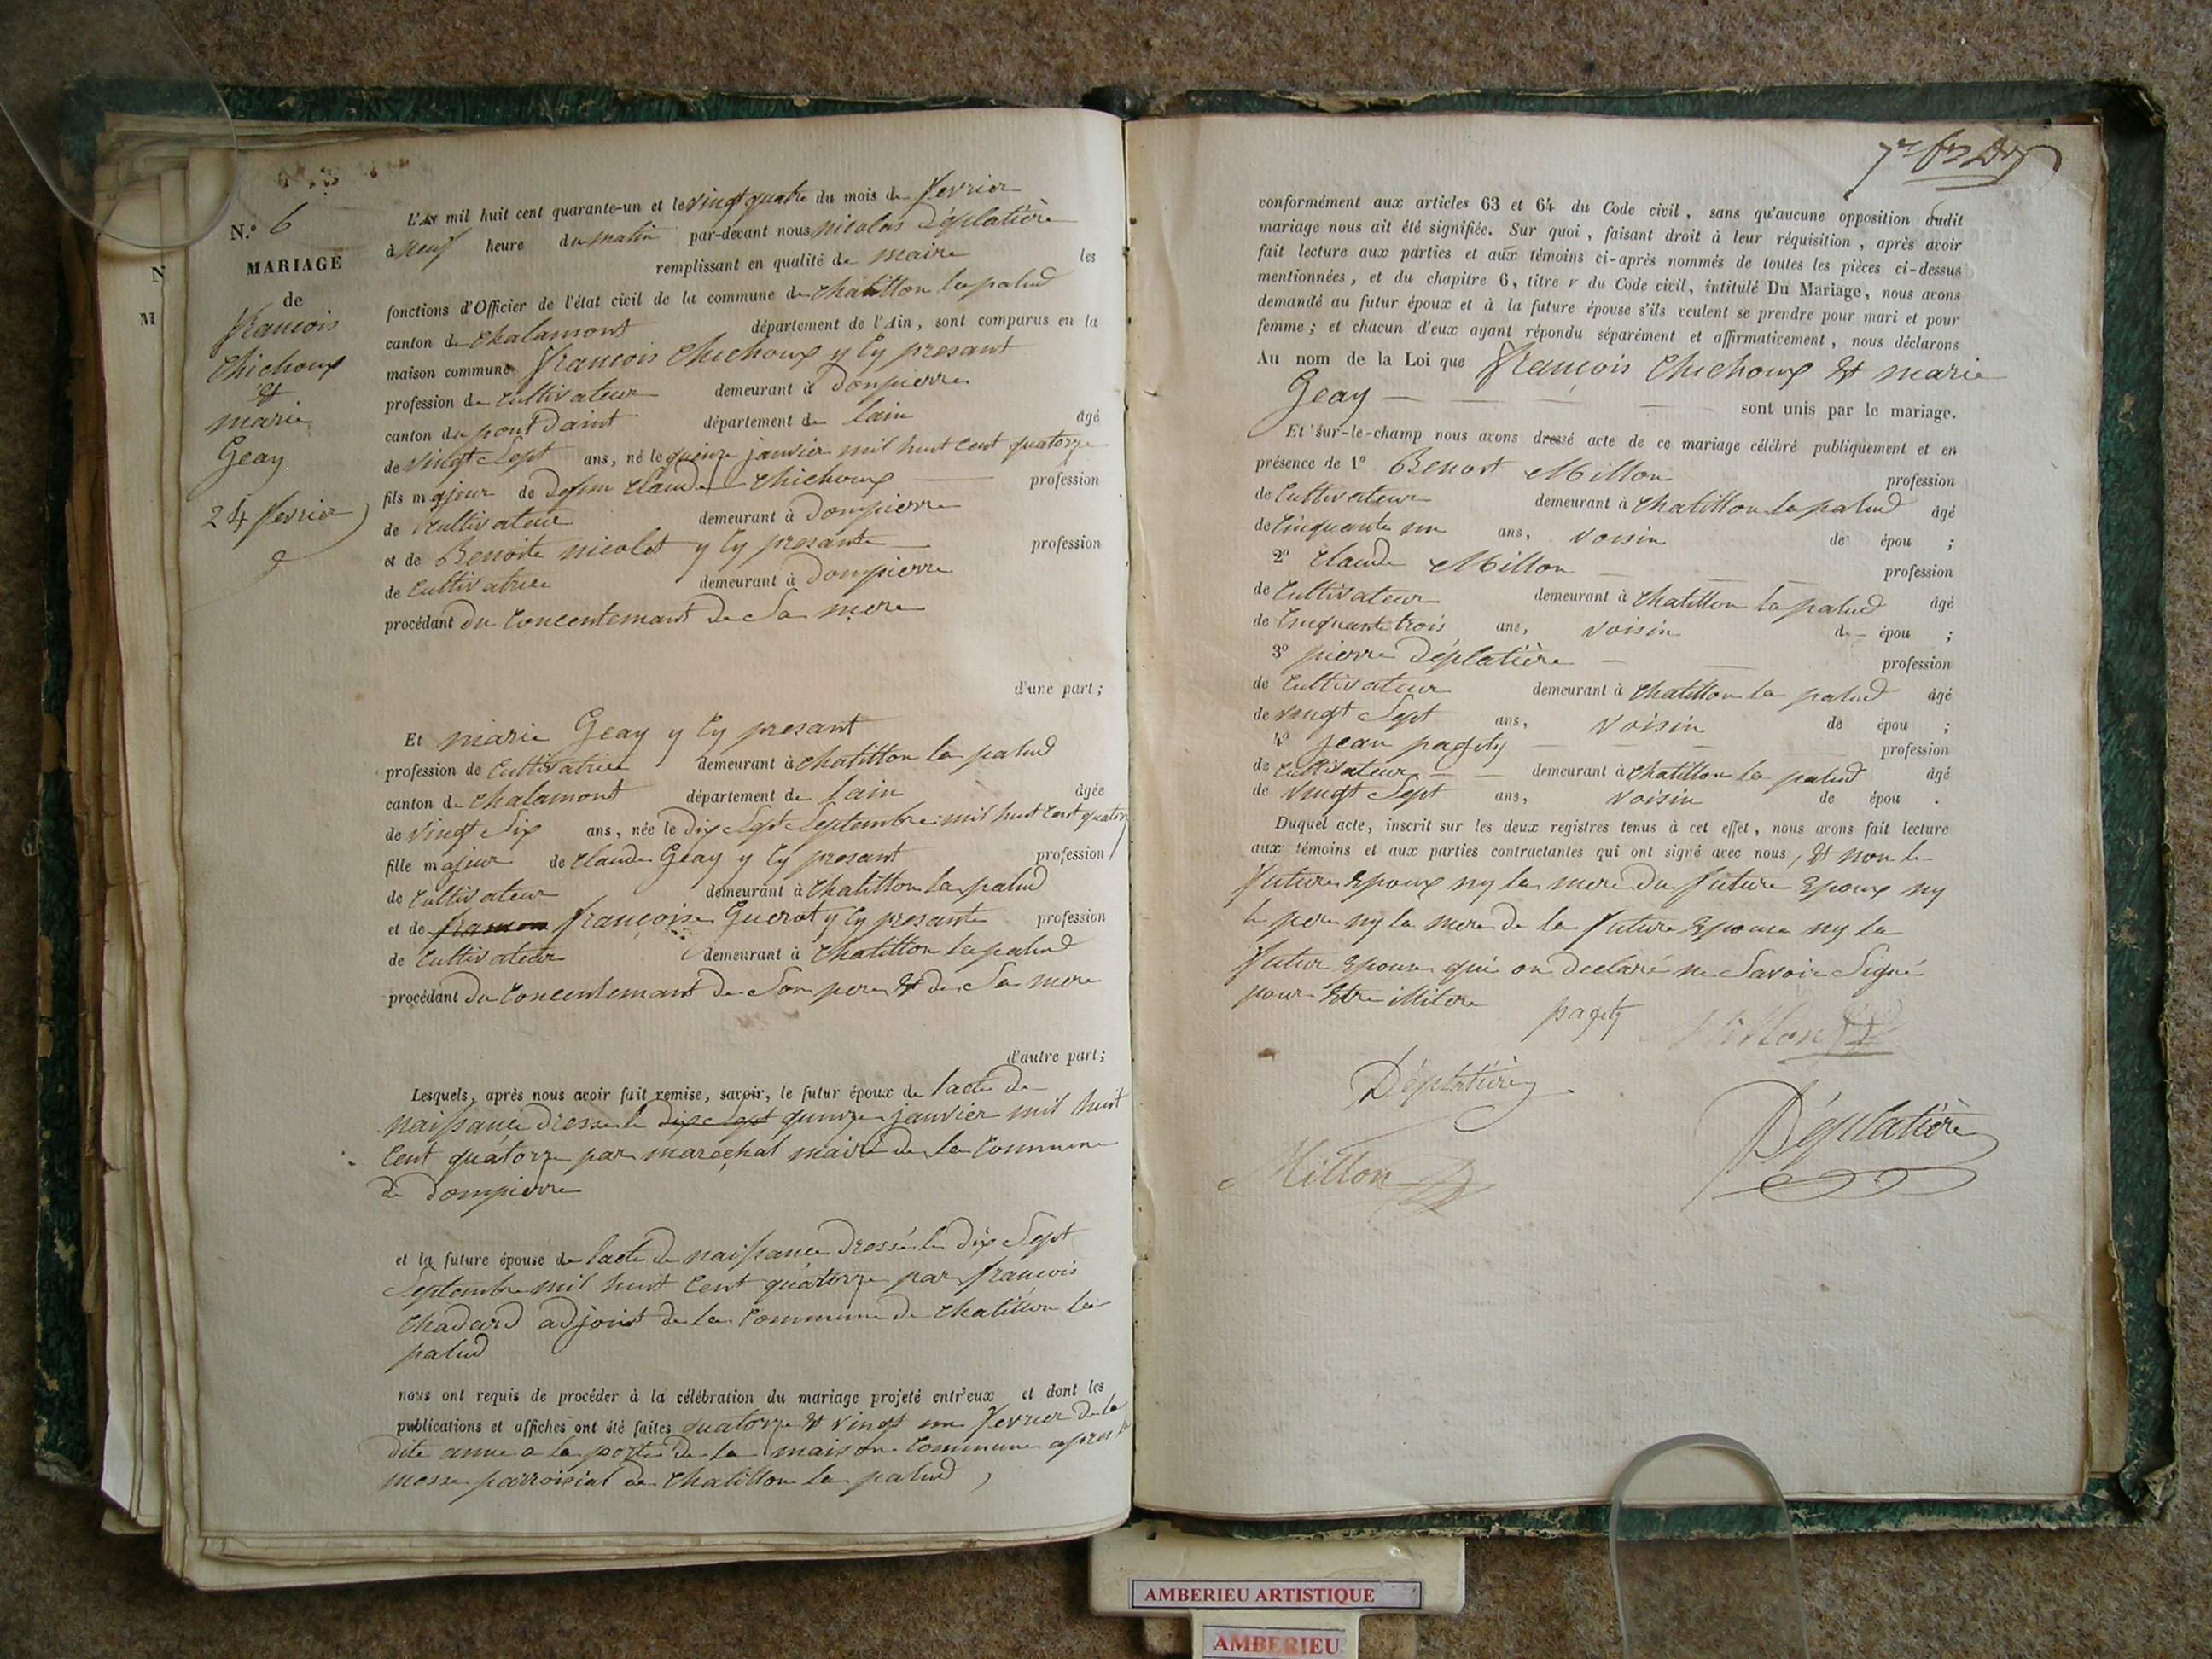 N.º 6
MARIAGE
de
francois
Chichoux
&
marie
Geay
24 fevrier
N
M
L'An mil huit cent quarante-un et le vingt quatre du mois de fevrier
à neuf heure du matin par-devant nous nicolas Déplatière
remplissant en qualité de maire les
fonctions d'Officier de l'état civil de la commune de chatillon la palud
canton de chalamont département de l'Ain, sont comparus en la
maison commune francois Chichoux y Cy presant
profession de Cultivateur demeurant à Dompierre
canton du pont Daint département de lain âgé
de vingt Sept ans, né le quinze janvier mil huit cent quatorze
fils majeur de Claude Chichoux profession
de Cultivateur demeurant à Dompierre
et de Benoite nicolet y Cy presante profession
de Cultivatrice demeurant à Dompierre
procédant du Concentemant De Sa mere
d'une part;
Et marie Geay y Cy presant
profession de Cultivatrice demeurant à chatillon la palud
canton de chalamont département de lain âgée
de vingt Six ans, née le Dix Sept Septembre mil huit cent quatorz
fille majeur de Claude Geay y Cy presant profession
de Cultivateur demeurant à Chatillon la palud
et de françoise Guerat y Cy presante profession
de Cultivateur demeurant à Chatillon la palud
procédant du Concentemant de Son pere & de Sa mere
d'autre part;
Lesquels, après nous avoir fait remise, savoir, le futur époux de lacte de
naissance Dressé le dix Sept quinze janvier mil huit
Cent quatorze par maréchal maire de la Commune
de Dompierre
et la future épouse de lacte de naissance Dressé le Dix Sept
Septembre mil huit Cent quatorze par francois
Chadard adjoint de la Commune de Chatillon la
palud
nous ont requis de procéder à la célébration du mariage projeté entr'eux et dont les
publications et affiches ont été faites quatorze & vingt un fevrier de la
dite anne a la porte de la maison Commune apres la
messe parroisial de Chatillon la palud
conformément aux articles 63 et 64 du Code civil, sans qu'aucune opposition dudit
mariage nous ait été signifiée. Sur quoi, faisant droit à leur réquisition, après avoir
fait lecture aux parties et aux témoins ci-après nommés de toutes les pièces ci-dessus
mentionnées, et du chapitre 6, titre v du Code civil, intitulé Du Mariage, nous avons
demandé au futur époux et à la future épouse s'ils veulent se prendre pour mari et pour
femme; et chacun d'eux ayant répondu séparément et affirmativement, nous déclarons
Au nom de la Loi que francois Chichoux & marie
Geay sont unis par le mariage.
Et sur-le-champ nous avons dressé acte de ce mariage célébré publiquement et en
présence de 1º Benoit Millon profession
de Cultivateur demeurant à Chatillon la palud âgé
de Cinquante un ans, voisin de épou ;
2º Claude Millon profession
de Cultivateur demeurant à Chatillon la palud âgé
de Cinquante trois ans, voisin de épou ;
3º pierre Déplatière profession
de Cultivateur demeurant à Chatillon la palud âgé
de vingt Sept ans, voisin de épou ;
4º jean pagity profession
de Cultivateur demeurant à Chatillon la palud âgé
de vingt Sept ans, voisin de épou .
Duquel acte, inscrit sur les deux registres tenus à cet effet, nous avons fait lecture
aux témoins et aux parties contractantes qui ont signé avec nous, & non le
future Epoux ny la mere Du future Epoux ny
le pere ny la mere de la future Epouse ny la
futur Epouse qui on declaré ne Savoir Signé
pour Etre illitere
pagity Millon
Déplatière
Déplatière
Millon
AMBERIEU ARTISTIQUE
AMBERIEU